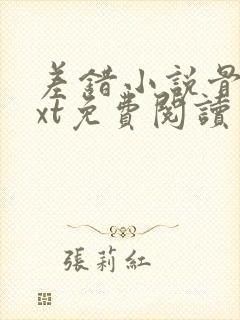 差錯小説最
xt免費閱讀
張莉紅